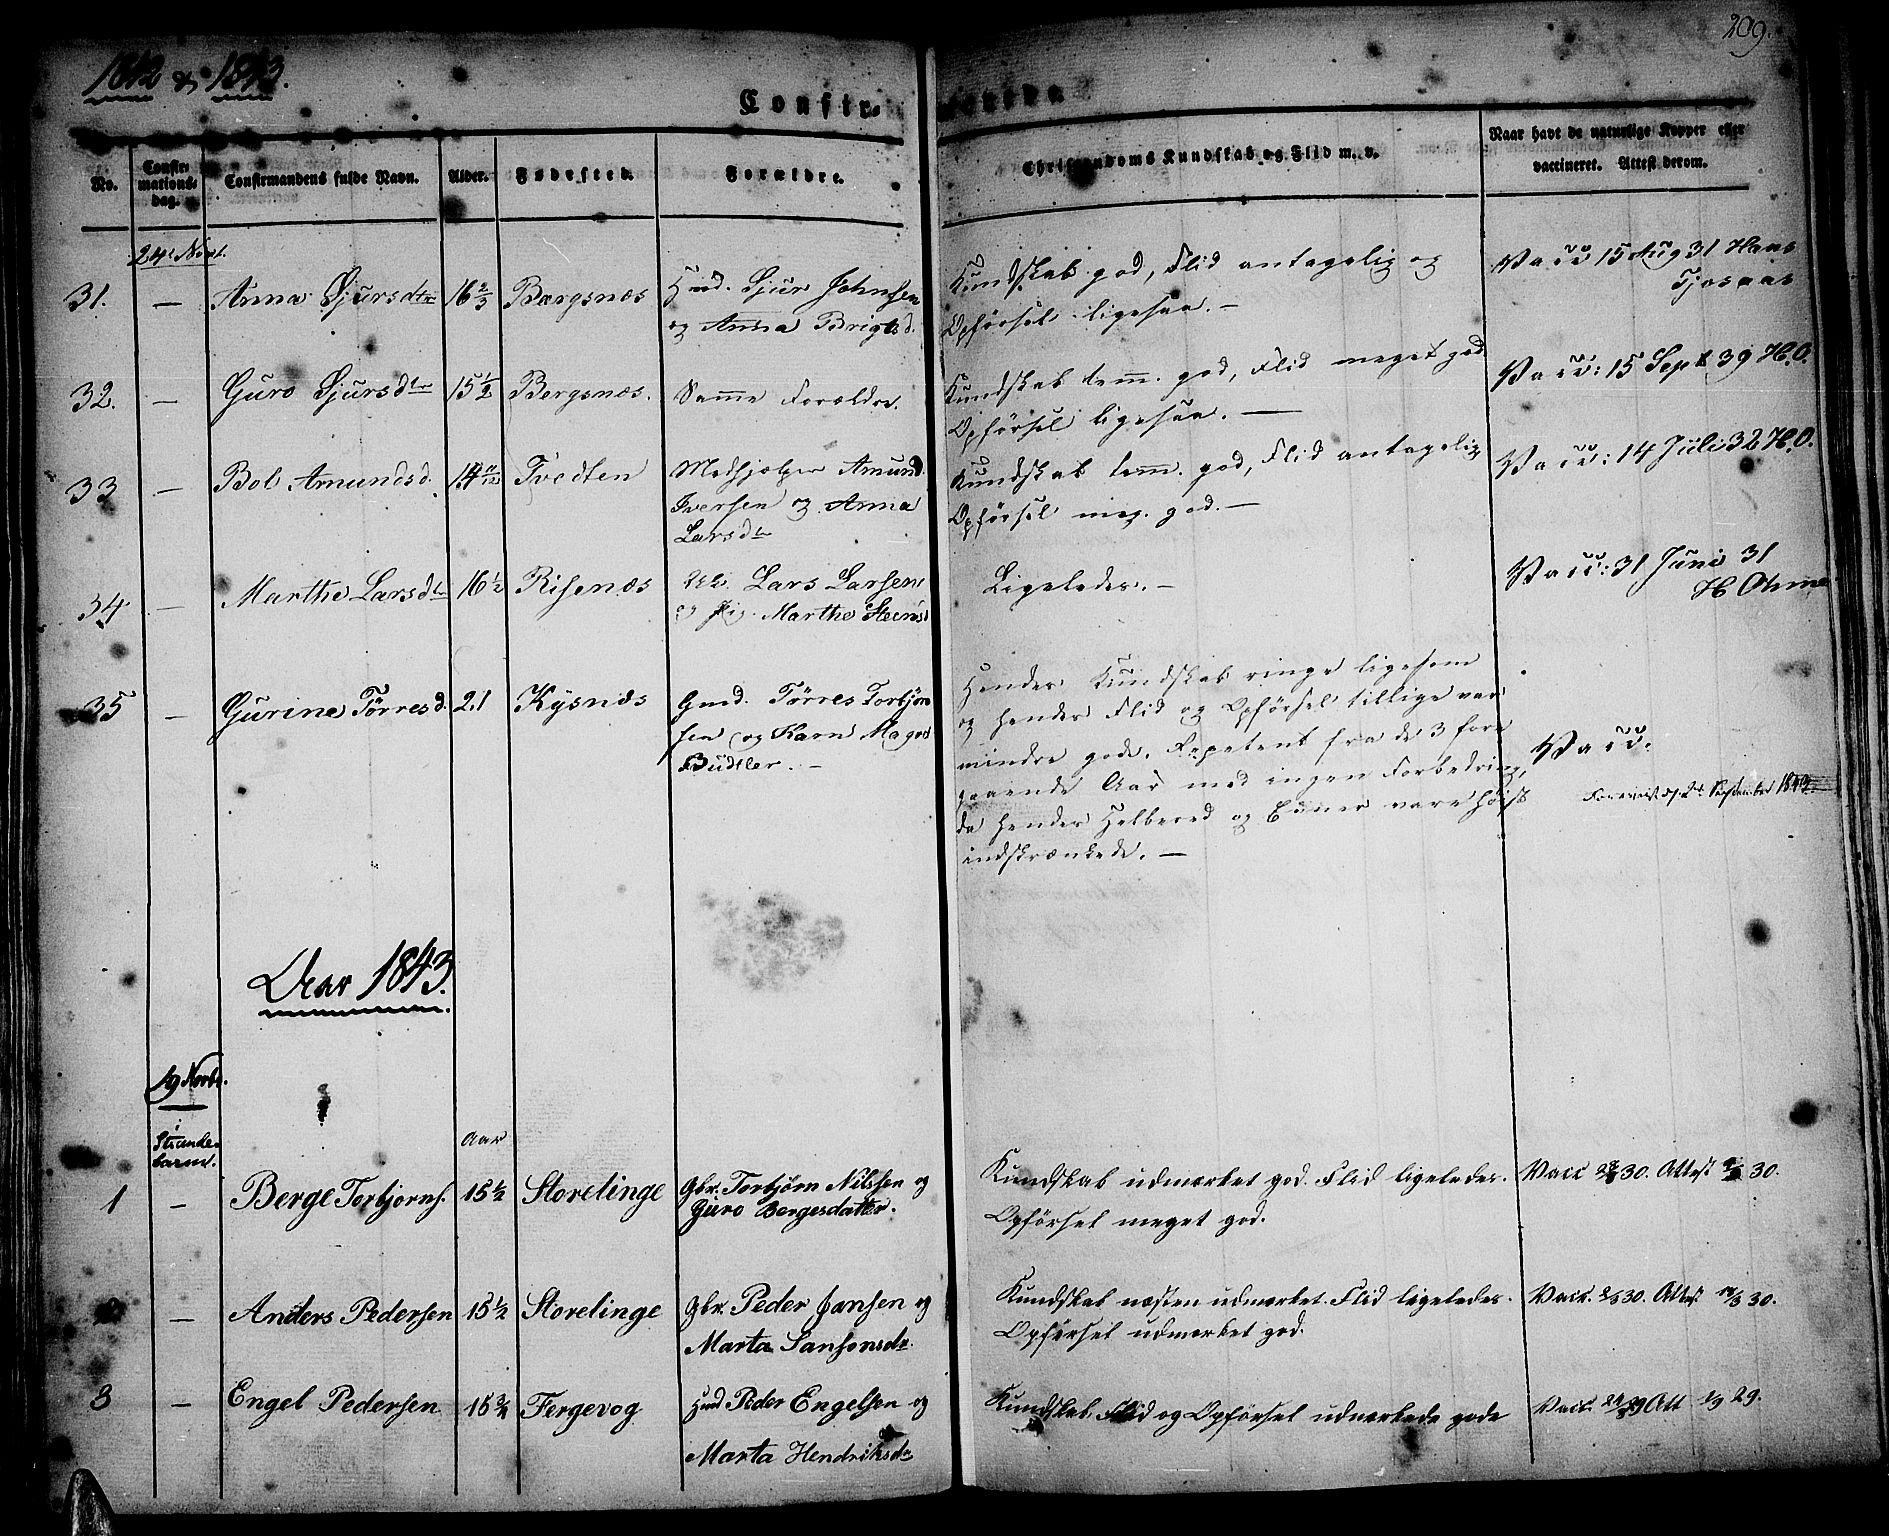 1842 & 1843.
209.
Confirmerede.
No.
Confirmations-dag.
Confirmandens fulde Navn.
Alder.
Fødested.
Forældre.
Christendoms Kundskab og Flid m. v.
Naar havt de naturlige Kopper eller
vaccineret. Attest derom.
24 Novt.
31. — Anna Sjursdtr 16 2/3 Bærgsnæs
Hmd. Sjur Johnsen
og Anna Brigtsd.
Kundskab god, Flid antagelig og
Opførsel ligesaa. —
Vacc 15 Aug 31 Hans
Tjosaas
32. — Guro Sjursdtr 15 1/2 Bergsnæs.
Samme Forældre.
Kundskab tem. god, Flid meget god
Opførsel ligesaa. —
Vacc: 15 Sept 39 H.O.
33 — Bol Amundsd. 14 11/12 Tvedten
Medhjelper Amund
Iversen og Anna
Larsdtr
Kundskab tem. god, Flid antagelig
Opførsel meg. god. —
Vacc: 14 Juli 32 H.O.
34 — Marthe Larsdtr 16 1/2 Risenæs
Lars Larsen
og Pig. Marthe Steensd
Ligeledes. —
Vacc: 31 Juni 31
H Ohme
35 — Gurine Tørresd. 21 Kysnæs
Gmd. Tørres Torbjørn
sen og Karn Magr
Büdtler. —
Hendes Kundskab ringe ligesom
og hendes Flid og Opførsel tillige var
mindre gode. Repetent fra de 3 fore
gaaende Aar med ingen Forbedring,
da hendes Helbered og Evner vare høist
indskrænkede. —
Vacc:
September 1843
Aar 1843.
19 Novbr.
i
Strande-
barm.
Aar
1 — Berge Torbjørns. 15 1/2 Storelinge
Gbr. Torbjørn Nilssen og
Guro Bergesdatter.
Kundskab udmærket god. Flid ligeledes.
Opførsel meget god.
Vacc 30. Attest 30.
2 — Anders Pedersen 15 1/2 Storelinge
Gbr. Peder Jansen og
Marta Sansonsdr.
Kundskab næsten udmærket. Flid ligeledes.
Opførsel udmærket god.
Vacc. 30. Attest 30.
3 — Engel Pedersen 15 3/4 Fergevog
Hmd Peder Engelsen og
Marta Hendriksdr
Kundskab Flid og Opførsel udmærkede gode
Vacc. 29 Att 1/9 29.